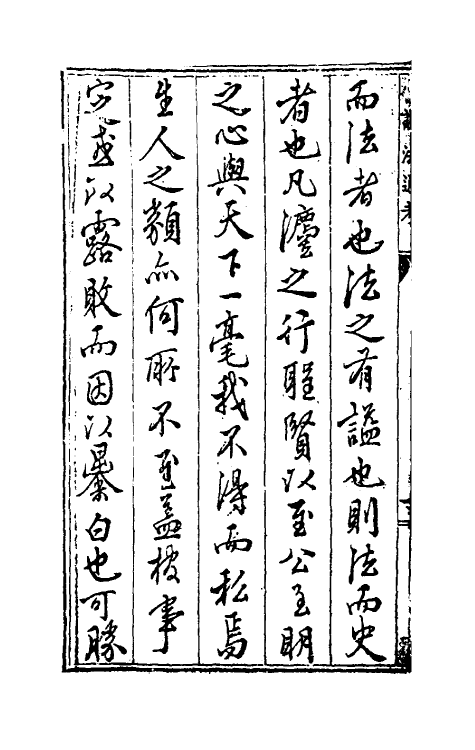 而法者也法之有諡也則法而史
者也凡瀘之行聖賢以至公至明
之心與天下一毫我不得而私焉
生人之類亦何所不至蓋按事
定或以露敗而因以暴白也可勝